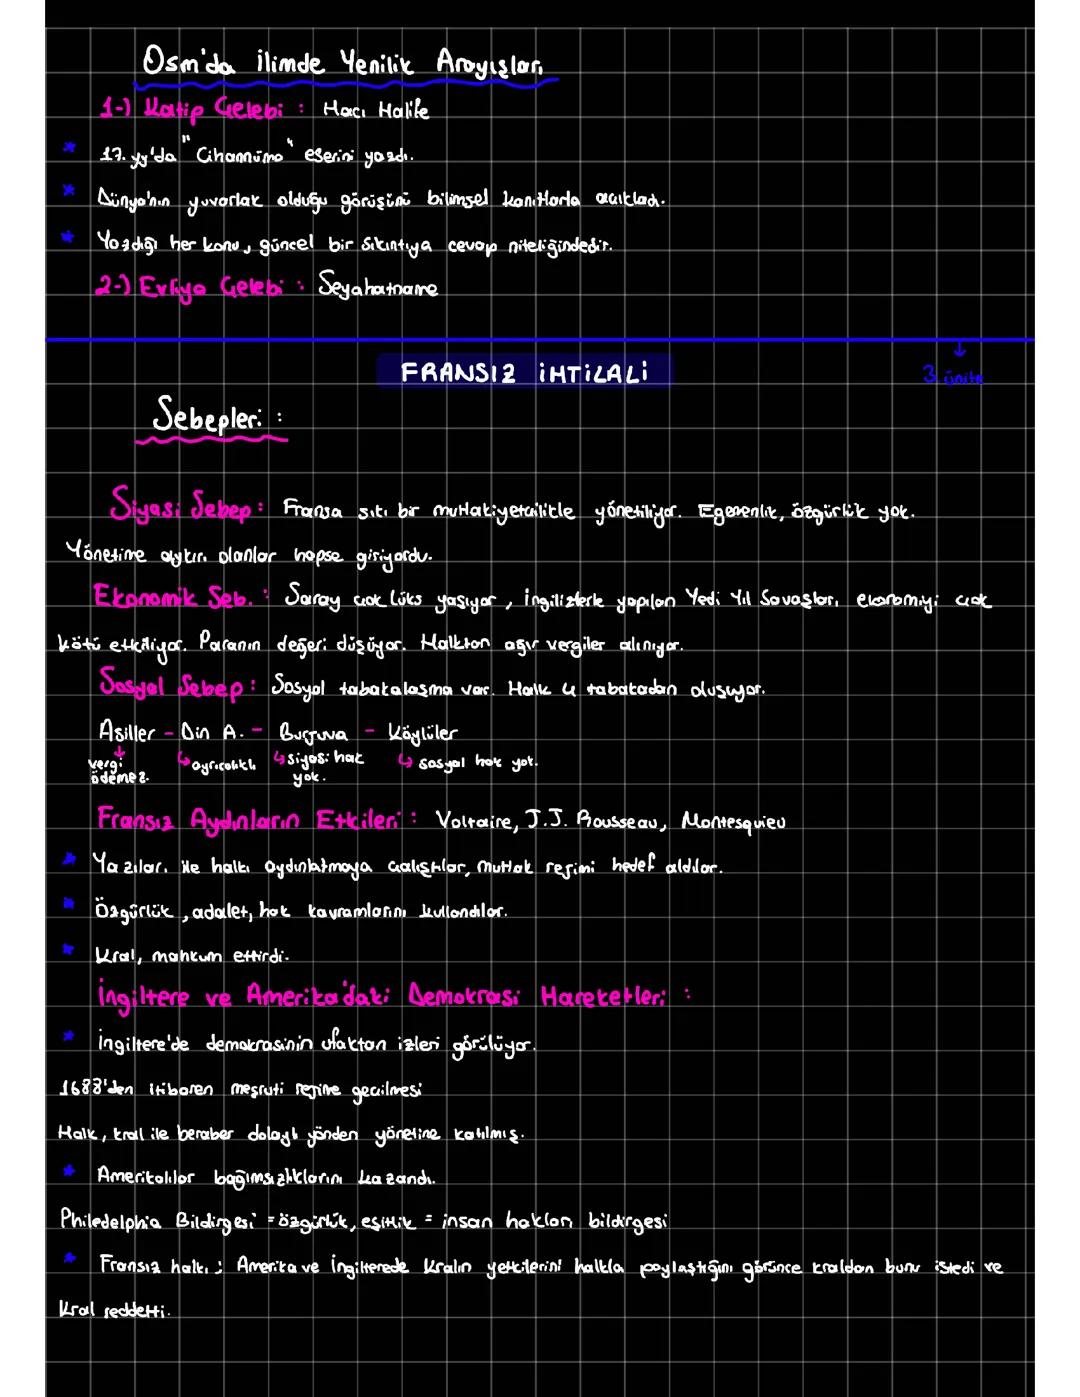 Osm'da ilimde Yenilik Arayışları
1-) Katip Çelebi : Hacı Halife
* 17. yy'da "Cihannüma" eserini yazdı.
* Dünya'nın yuvarlak olduğu görüşünü bilimsel kanıtlarla açıkladı.
* Yazdığı her konu, güncel bir sıkıntıya cevap niteliğindedir.
2-) Evliya Çelebi : Seyahatname
FRANSIZ İHTİLALİ
3. ünite
Sebepleri :
Siyasi Sebep : Fransa sıkı bir mutlakiyetçilikle yönetiliyor. Egemenlik, özgürlük yok.
Yönetime aykırı olanlar hapse giriyordu.
Ekonomik Seb. : Saray çok lüks yaşıyor, İngilizlerle yapılan Yedi Yıl Savaşları ekonomiyi çok
kötü etkiliyor. Paranın değeri düşüyor. Halktan ağır vergiler alınıyor.
Sosyal Sebep : Sosyal tabakalaşma var. Halk 4 tabakadan oluşuyor.
Asiller - Din A. - Burjuva - Köylüler
↓ vergi ödemez. ↳ ayrıcalıklı ↳ siyasi hak yok. ↳ sosyal hak yok.
Fransız Aydınların Etkileri : Voltaire, J.J. Rousseau, Montesquieu
* Yazıları ile halkı aydınlatmaya çalıştılar, mutlak rejimi hedef aldılar.
* Özgürlük, adalet, hak kavramlarını kullandılar.
* Kral, mahkum ettirdi.
İngiltere ve Amerika'daki Demokrasi Hareketleri :
* İngiltere'de demokrasinin ufaktan izleri görülüyor.
1688'den itibaren meşruti rejime geçilmesi
Halk, kral ile beraber dolaylı yönden yönetime katılmış.
* Amerikalılar bağımsızlıklarını kazandı.
Philedelphia Bildirgesi = özgürlük, eşitlik = insan hakları bildirgesi
* Fransız halkı ; Amerika ve İngilterede Kralın yetkilerini halkla paylaştığını görünce kraldan bunu istedi ve
Kral reddetti.